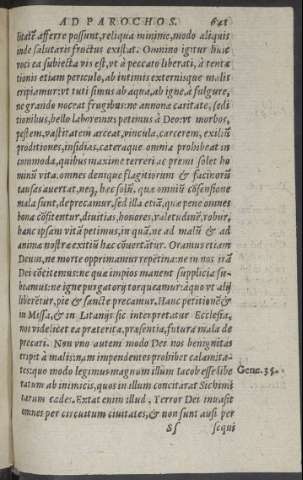 AD PAROCHOS. 641
litatē afferre possunt, reliqua minime, modo aliquis
inde salutaris fructus existat. Omnino igitur huic
voci ea subiecta vis est, vt à peccato liberati, à tenta
tionis etiam periculo, ab intimis externisque malis
eripiamur: vt tuti simus ab aqua, ab igne, à fulgure,
ne grando noceat frugibus: ne annonæ caritate, sedi
tionibus, bello laboremus petimus à Deo: vt morbos,
pestem, vastitatem arceat, vincula, carcerem, exiliū
proditiones, insidias, cæteraque omnia prohibeat in
commoda, quibus maxime terreri, ac premi solet ho
minū vita. omnes demque flagitiorum & facinorū
causas auertat, neq, hæc solū, quæ omniū cōsensione
mala sunt, deprecamur, sed illa etiā, quæ pene omnes
bona cōfitentur, diuitias, honores, valetudinē, robur,
hanc ipsam vitā petimus, in quā, ne ad malū & ad
animæ nostræ exitiū hæc cōuertātur. Oramus etiam
Deum, ne morte opprimamur repētina: ne in nos irā
Dei cōcitemus: ne quæ impios manent supplicia su-
beamus: ne igne purgatorij torqueamur: à quo vt alij
liberētur, pie & sancte precamur. Hanc petitionē &
in Missa, & in Litanijs sic interpretatur Ecclesia,
nos videlicet ea præterita, præsentia, futura mala de
precari. Non vno autem modo Dei nos benignitas
eripit à malis: nam impendentes prohibet calamita-
tes: quo modo legimus magnum illum Iacob esse libe Gene. 35.
ratum ab inimicis, quos in illum concitarat Sichimi
tarum cædes. Extat enim illud, Terror Dei inuasit
omnes per circuitum ciuitates, & non sunt ausi per
Ss sequi